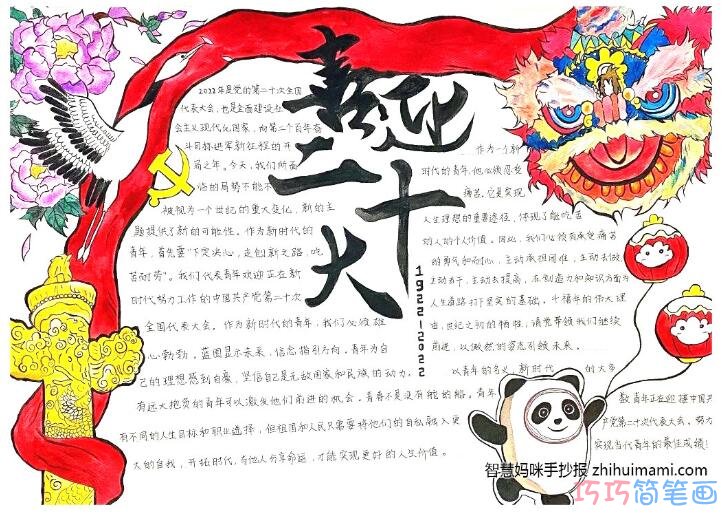 喜迎二十大
1922-2022
2022年是党的第二十次全国
代表大会，也是全面建设社
会主义现代化国家，向第二个百年奋
斗目标进军新征程的开
局之年。今天，我们所面
临的局势不能不
被视为一个世纪的重大变化，新的主
题提供了新的可能性。作为新时代的
青年，首先要"下定决心，走创新之路，吃
苦耐劳"。我们代表青年欢迎正在新
时代努力工作的中国共产党第二十次
全国代表大会。作为新时代的青年，我们必须雄
心勃勃。蓝图显示未来，信念指引方向。青年为自
己的理想感到自豪，坚信自己是无敌国家和民族的动力。
有远大抱负的青年可以激发他们前进的机会。青春不是没有舵的船。青年
有不同的人生目标和职业选择，但祖国和人民只需要将他们的自私融入更
大的自我，开拓时代，与他人分享命运，才能实现更好的人生价值。
作为一个新
时代的青年，他必须忍受
痛苦。它是实现
人生理想的重要途径，体现了能吃苦
的人的个人价值。因此，我们必须有承受痛苦
的勇气和耐心，主动承担困难，主动去做
主动去干，主动去提高，在创造力和知识方面为
人生道路打下坚实的基础。千禧年的伟大理
由，世纪之初的牺牲，请党带领我们继续
前进，以傲然的姿态引领未来。
以青年的名义，新时代的大多
数青年正在迎接中国共
产党第二十次代表大会，努力
实现当代青年的最佳成绩！
智慧妈咪手抄报 zhihuimami.com
巧巧简笔画